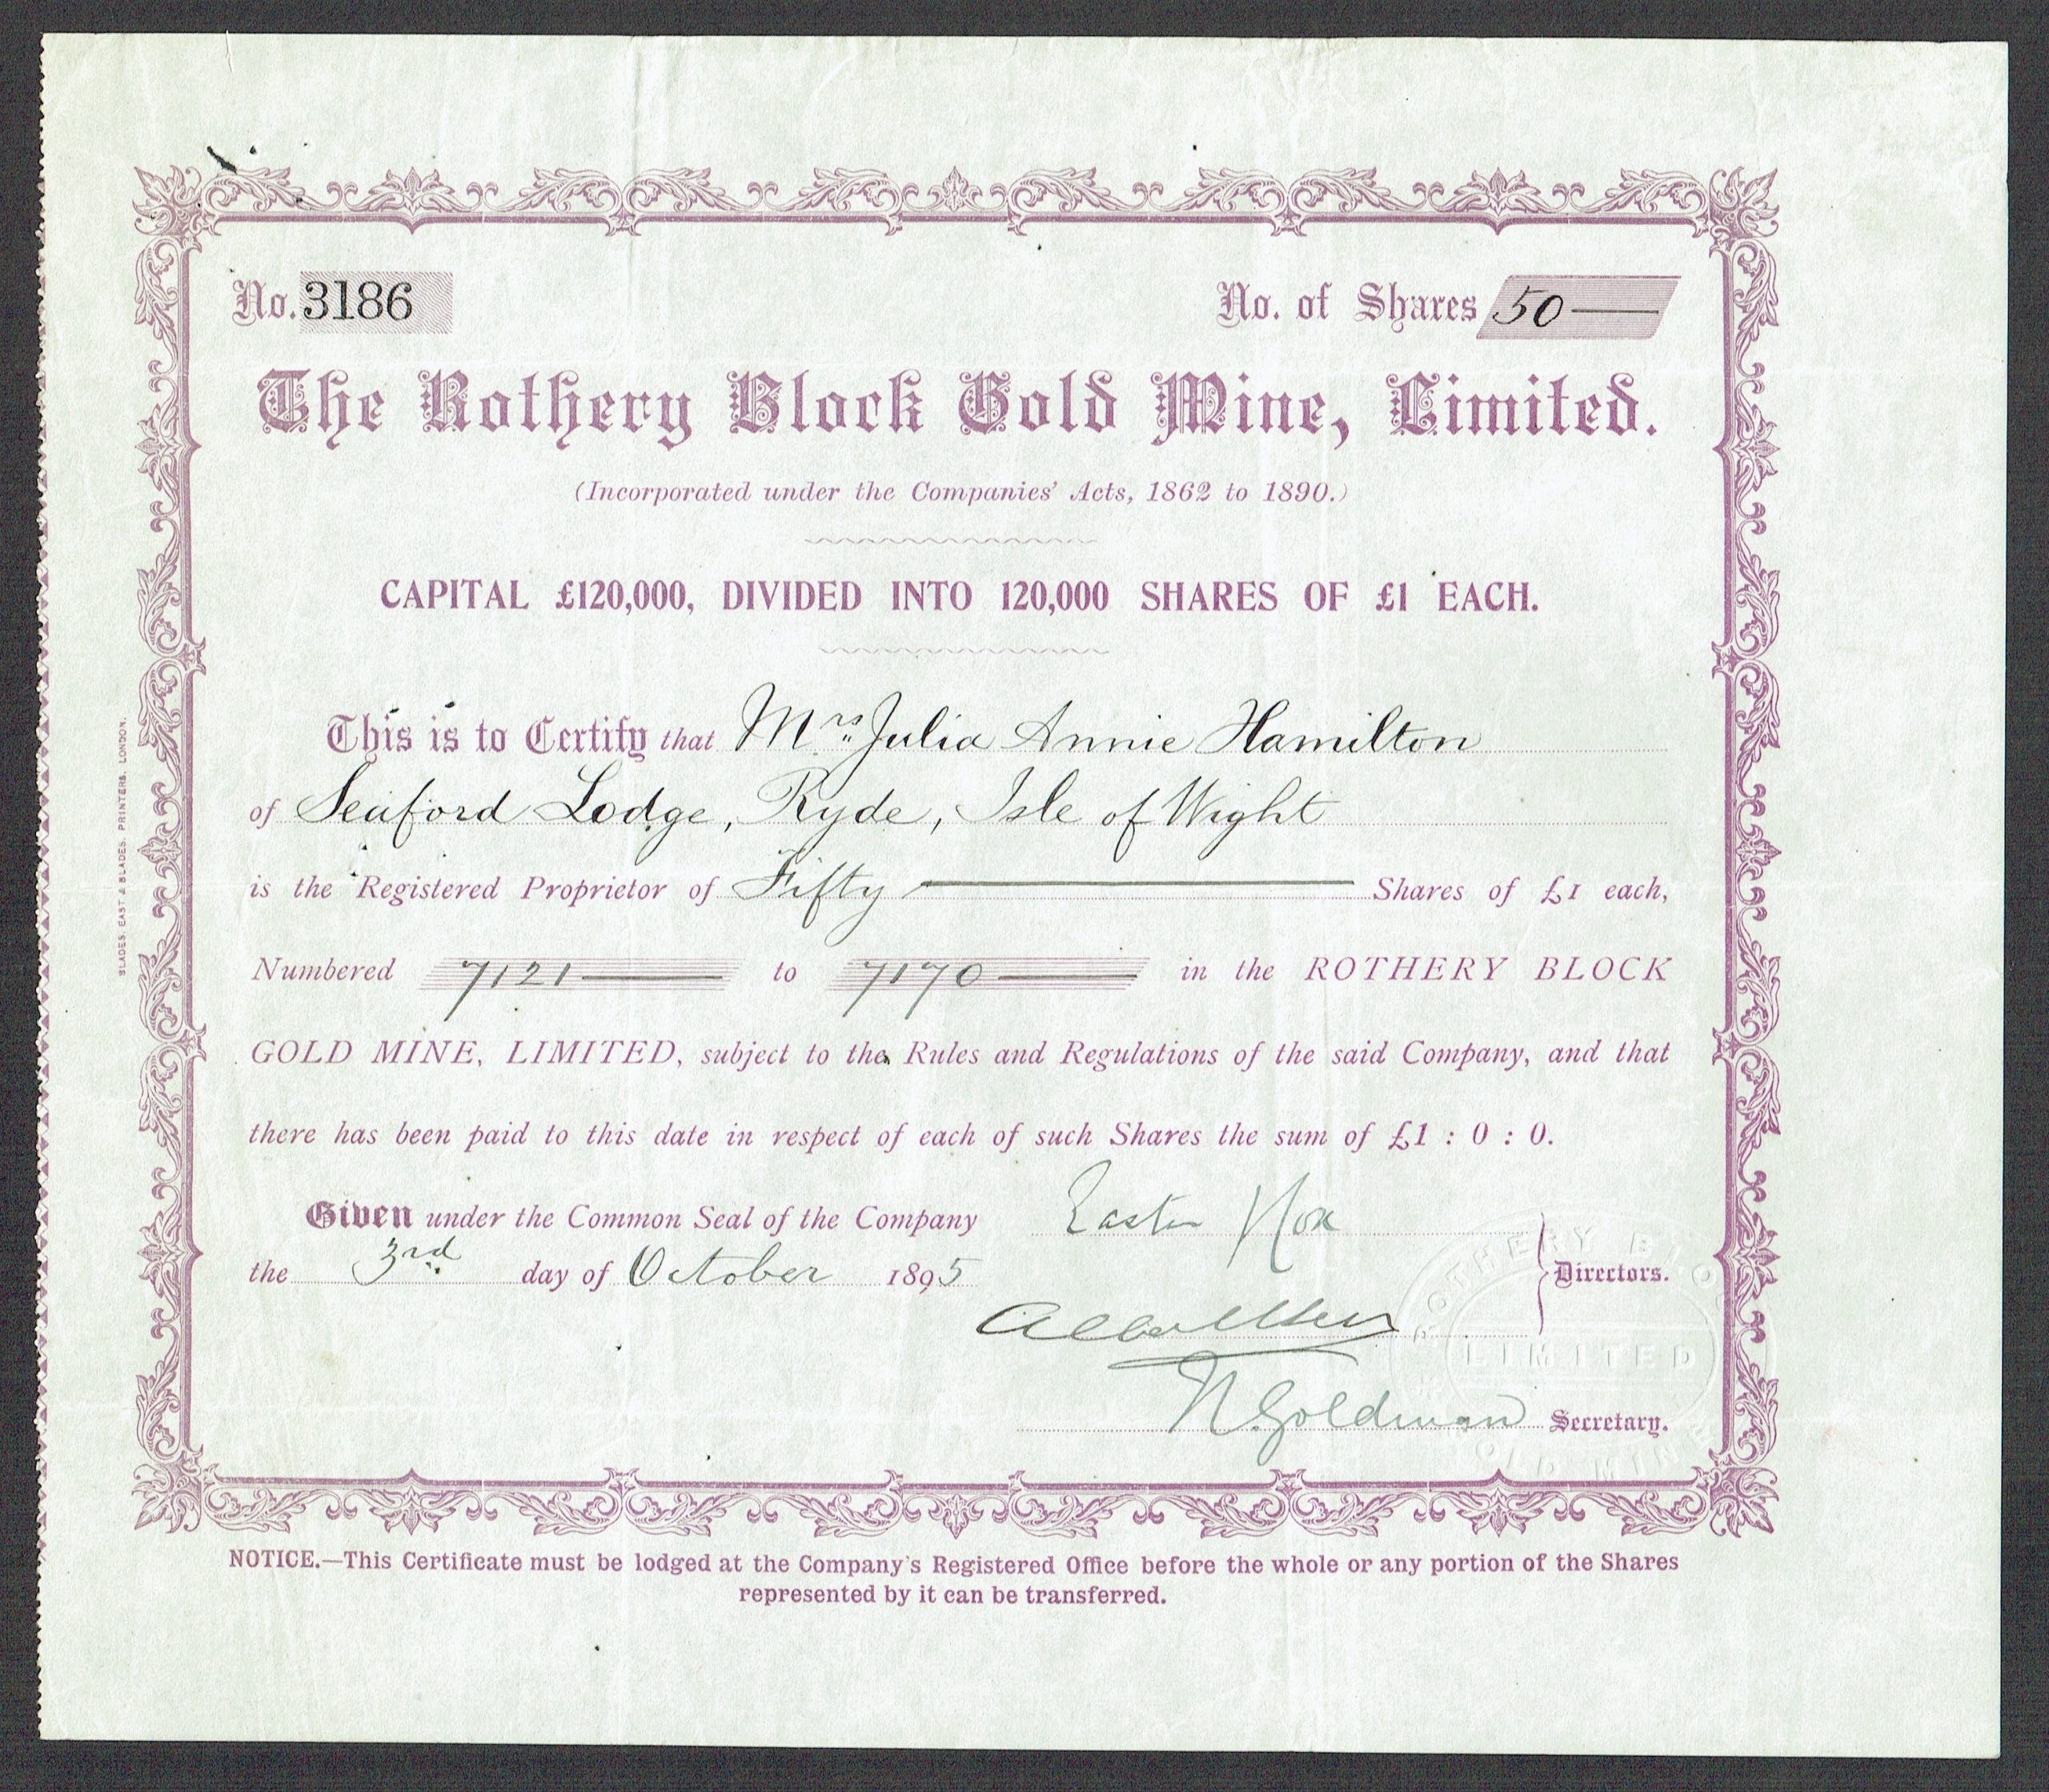 No. 3186
No. of Shares 50
The Rothery Block Gold Mine, Limited.
(Incorporated under the Companies' Acts, 1862 to 1890.)
CAPITAL £120,000, DIVIDED INTO 120,000 SHARES OF £1 EACH.
This is to Certify that Mrs Julia Annie Hamilton
of Seaford Lodge, Ryde, Isle of Wight
is the Registered Proprietor of Fifty Shares of £1 each,
Numbered 7121 to 7170 in the ROTHERY BLOCK
GOLD MINE, LIMITED, subject to the Rules and Regulations of the said Company, and that
there has been paid to this date in respect of each of such Shares the sum of £1 : 0 : 0.
Given under the Common Seal of the Company
the 3rd day of October 1895
Directors.
N. Goldman Secretary.
LIMITED
NOTICE.—This Certificate must be lodged at the Company's Registered Office before the whole or any portion of the Shares
represented by it can be transferred.
BLADES, EAST & BLADES, PRINTERS, LONDON.